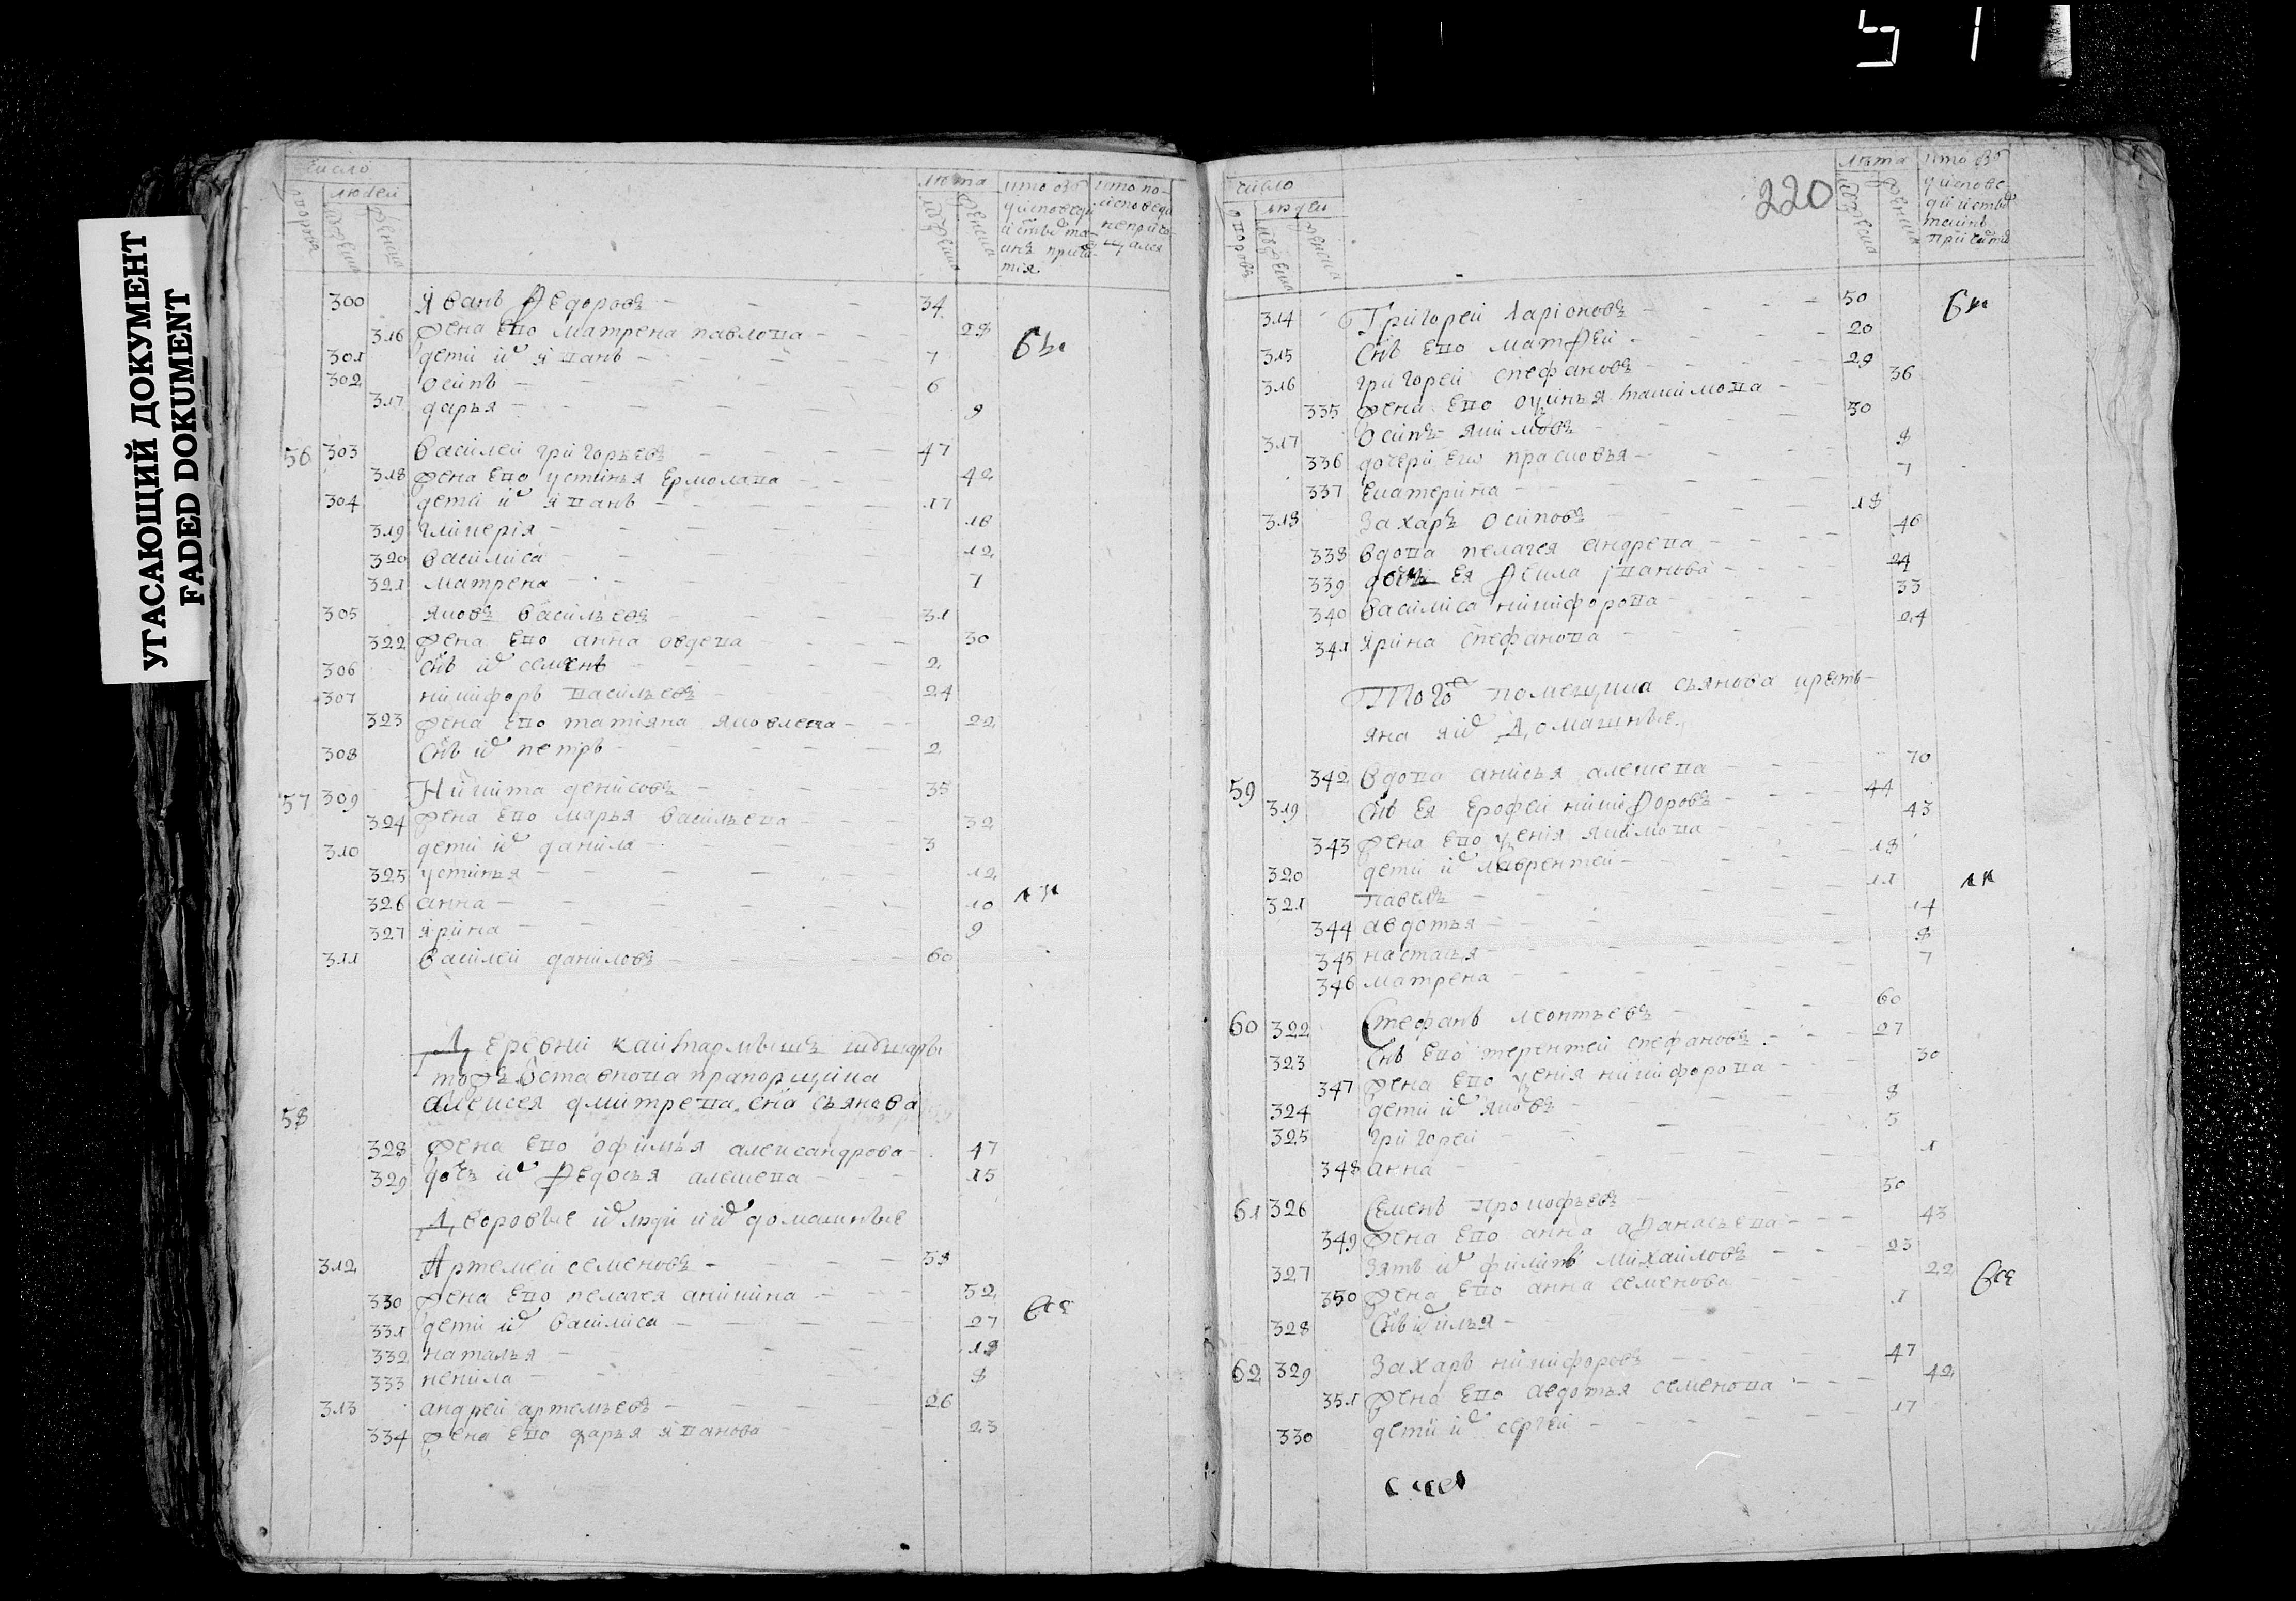 УГАСАЮЩИЙ ДОКУМЕНТ
FADED DOKUMENT
число
людей
лѣта
300 Иванъ Федоровъ 34
316 жена ево матрена павлова 28
301 дети их иванъ 7
302 осипъ 6
317 дарья 9
56 303 василей григорьевъ 47
318 жена ево устинья ермолава 42
304 дети их иванъ 17
319 гликерія 16
320 василиса 12
321 матрена 7
305 яковъ васильевъ 31
322 жена ево анна овдева 30
306 снъ их семенъ 2
307 никифоръ васильевъ 24
323 жена ево татіяна яковлева 22
308 снъ их петръ 2
57 309 Никита денисовъ 35
324 жена ево марья васильева 32
310 дети их данила 3
325 устинья 12
326 анна 10
327 ярина 9
311 василей даниловъ 60
Деревни
прапорщика
58 алексея дмитрева сна сьянова
328 жена ево офимья александрова 47
329 дочь их Федосья алексева 15
Дворовые их люди и их домашные
312 Артемей семеновъ 58
330 жена ево пелагея аникина 52
331 дети их василиса 27
все
332 наталья 18
333 ненила 8
313 андрей артемьевъ 26
334 жена ево дарья иванова 23
220
число
люди
лѣта
314 Григорей Ларіоновъ 50
315 снъ ево матфей 20
316 григорей стефановъ 29
335 жена ево устинья 36
317 Осипъ якимовъ 30
336 дочери ево прасковья 8
337 екатерина 7
318 Захаръ осиповъ 18
338 вдова пелагея андрева 46
339 дочь ея Фекла іванова 24
340 василиса никифорова 33
341 ярина стефанова 24
Тогож помещика сьянова кресть
яна и их Домашные
59 342 вдова анисья алексева 70
319 снъ ея ерофей никифоровъ 44
343 жена ево ксенія якимова 43
320 дети их лаврентей 18
321 павелъ 11
344 авдотья 14
345 настасья 8
346 матрена 7
60 322 Стефанъ леонтьевъ 60
323 снъ ево терентей стефановъ 27
347 жена ево ксенія никифорова 30
324 дети их яковъ 8
325 григорей 5
348 анна 1
61 326 Семенъ Прокофьевъ 50
349 жена ево анна афанасьева 43
327 зять их филипъ михайловъ 23
350 жена ево анна семенова 22
все
328 снъ их илья 1
62 329 Захаръ никифоровъ 47
351 жена ево авдотья семенова 42
330 дети их сергей 17